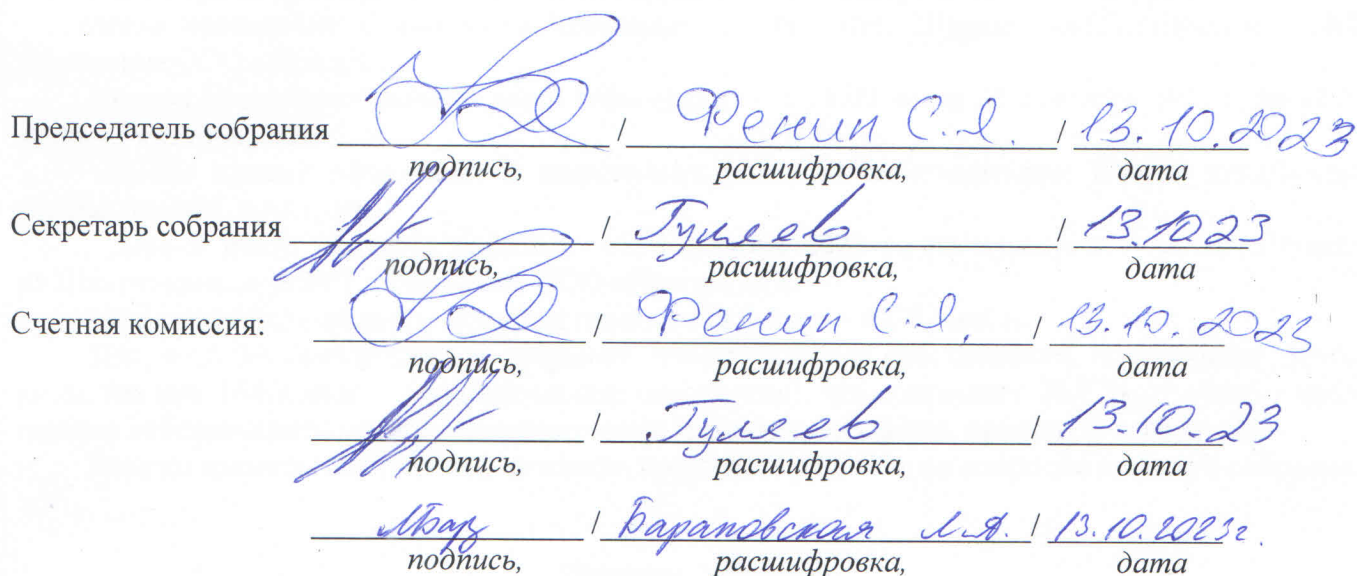 Председатель собрания / Фенин С.Я. / 13.10.2023
подпись, расшифровка, дата
Секретарь собрания / Гуляев / 13.10.23
подпись, расшифровка, дата
Счетная комиссия: / Фенин С.Я. / 13.10.2023
подпись, расшифровка, дата
/ Гуляев / 13.10.23
подпись, расшифровка, дата
/ Барановская / 13.10.2023г.
подпись, расшифровка, дата